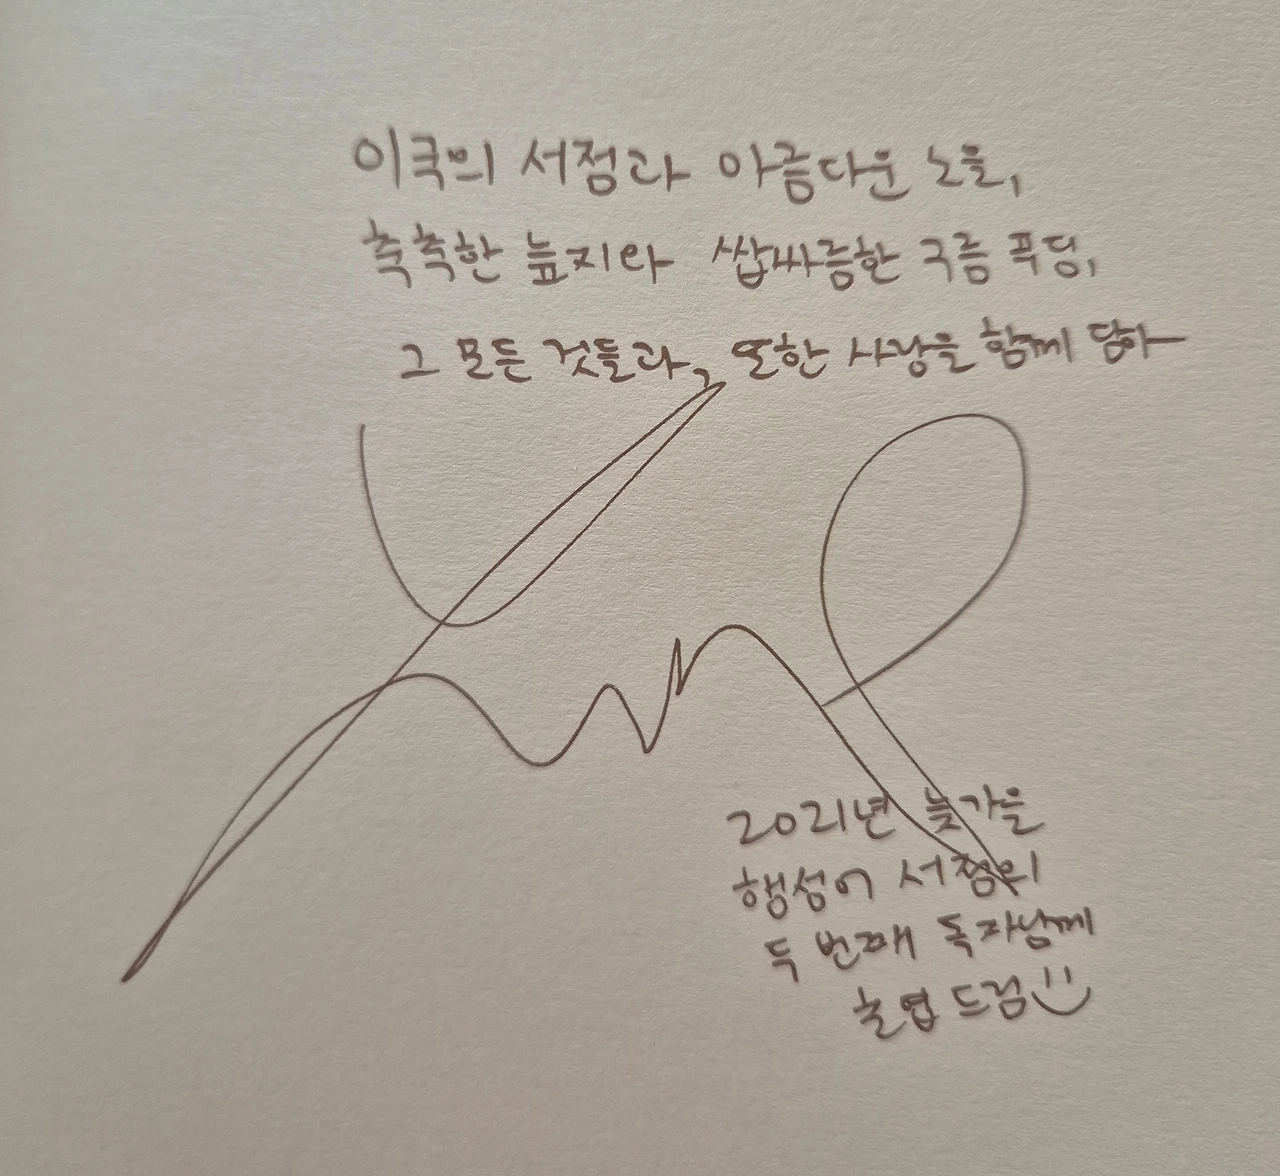 이국의 서점과 아름다운 노을,
축축한 늪지와 쌉싸름한 구름 푸딩,
그 모든 것들과, 또한 사랑을 함께 담아
2021년 늦가을
행성어 서점의
두 번째 독자님께
초엽 드림